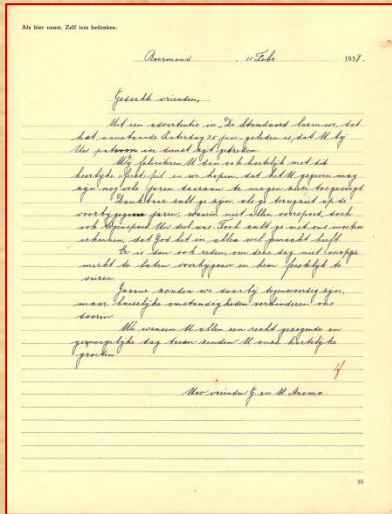 Als hier naast. Zelf iets bedenken.
Roermond, 11 Febr. 1937.
Geachte vrienden,
Uit een advertentie in „De Standaard lazen we, dat
het aanstaande Zaterdag 25 jaar geleden is, dat U bij
Uw patroon in dienst zijt getreden.
Wij feliciteren U dan ook hartelijk met dit
heerlijke feest feit en we hopen, dat het U gegeven mag
zijn nog vele jaren daaraan te mogen zien toegevoegd
Dankbaar zult ge zijn, als ge terugziet op de
voorbijgegane jaren, waarin niet alleen voorspoed, doch
ook tegenspoed Uw deel was. Toch zult ge met ons moeten
erkennen, dat God het in alles wel gemaakt heeft.
Er is dan ook reden, om deze dag niet onopge
merkt te laten voorbijgaan en hem feestelijk te
vieren
Gaarne zouden we daarbij tegenwoordig zijn,
maar huiselijke omstandigheden verhinderen ons
daarin.
We wensen U allen een recht gezegende en
genoegelijke dag toe en zenden U onze hartelijke
groeten
Uw vrienden G. en M. Anema